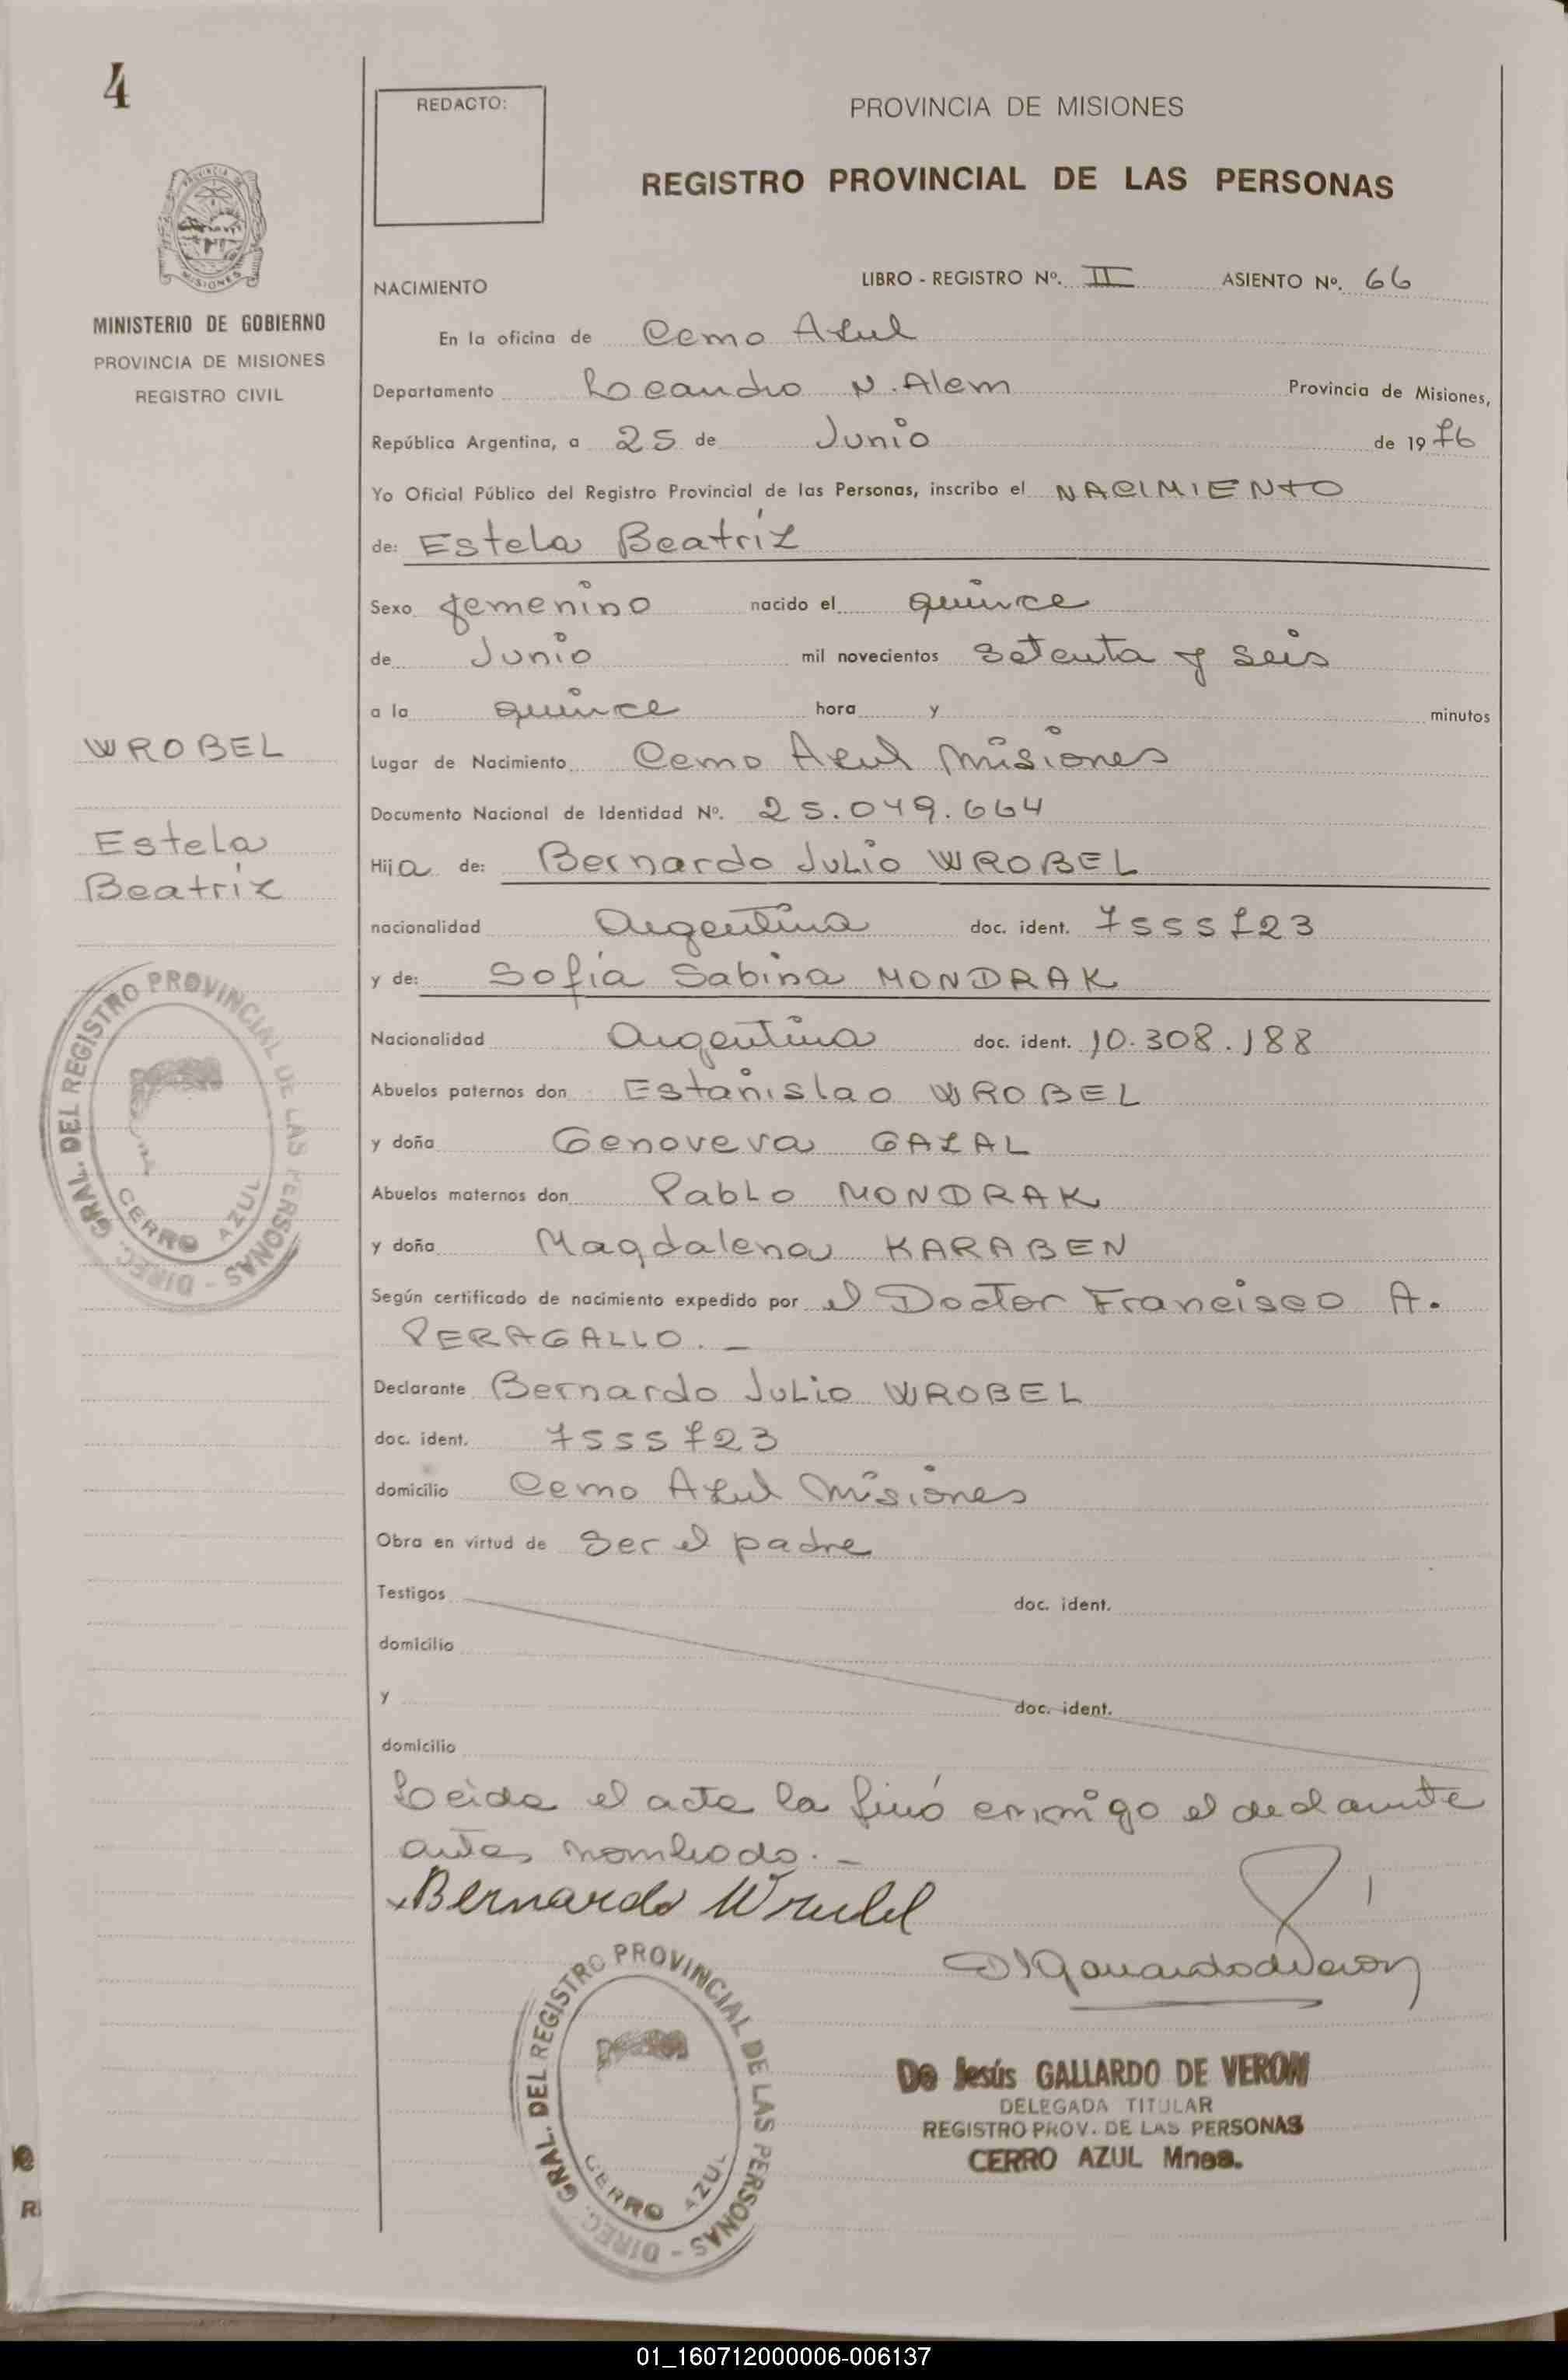 4
REDACTO:
PROVINCIA DE MISIONES
REGISTRO PROVINCIAL DE LAS PERSONAS
MISIONES
MINISTERIO DE GOBIERNO
PROVINCIA DE MISIONES
REGISTRO CIVIL
NACIMIENTO LIBRO - REGISTRO Nº. II ASIENTO Nº. 66
En la oficina de Cerro Azul
Departamento Leandro N. Alem Provincia de Misiones,
República Argentina, a 25 de Junio de 1976
Yo Oficial Público del Registro Provincial de las Personas, inscribo el NACIMIENTO
de: Estela Beatríz
Sexo femenino nacido el quince
de Junio mil novecientos setenta y seis
a la quince hora y minutos
Lugar de Nacimiento Cerro Azul Misiones
Documento Nacional de Identidad Nº. 25.049.664
Hija de: Bernardo Julio WROBEL
nacionalidad Argentina doc. ident. 7555723
y de: Sofía Sabina MONDRAK
Nacionalidad Argentina doc. ident. 10.308.188
Abuelos paternos don Estanislao WROBEL
y doña Genoveva GAZAL
Abuelos maternos don Pablo MONDRAK
y doña Magdalena KARABEN
Según certificado de nacimiento expedido por el Doctor Francisco A.
PERAGALLO. _
Declarante Bernardo Julio WROBEL
doc. ident. 7555723
domicilio Cerro Azul Misiones
Obra en virtud de ser el padre
Testigos doc. ident.
domicilio
y doc. ident.
domicilio
Leida el acta la firmó conmigo el declarante
antes nombrado. _
Bernardo Wrubel
WROBEL
Estela
Beatriz
DIREC. GRAL. DEL REGISTRO PROVINCIAL DE LAS PERSONAS -
CERRO AZUL
DIREC. GRAL. DEL REGISTRO PROVINCIAL DE LAS PERSONAS -
CERRO AZUL
De Jesús GALLARDO DE VERON
DELEGADA TITULAR
REGISTRO PROV. DE LAS PERSONAS
CERRO AZUL Mnes.
R
01_160712000006-006137